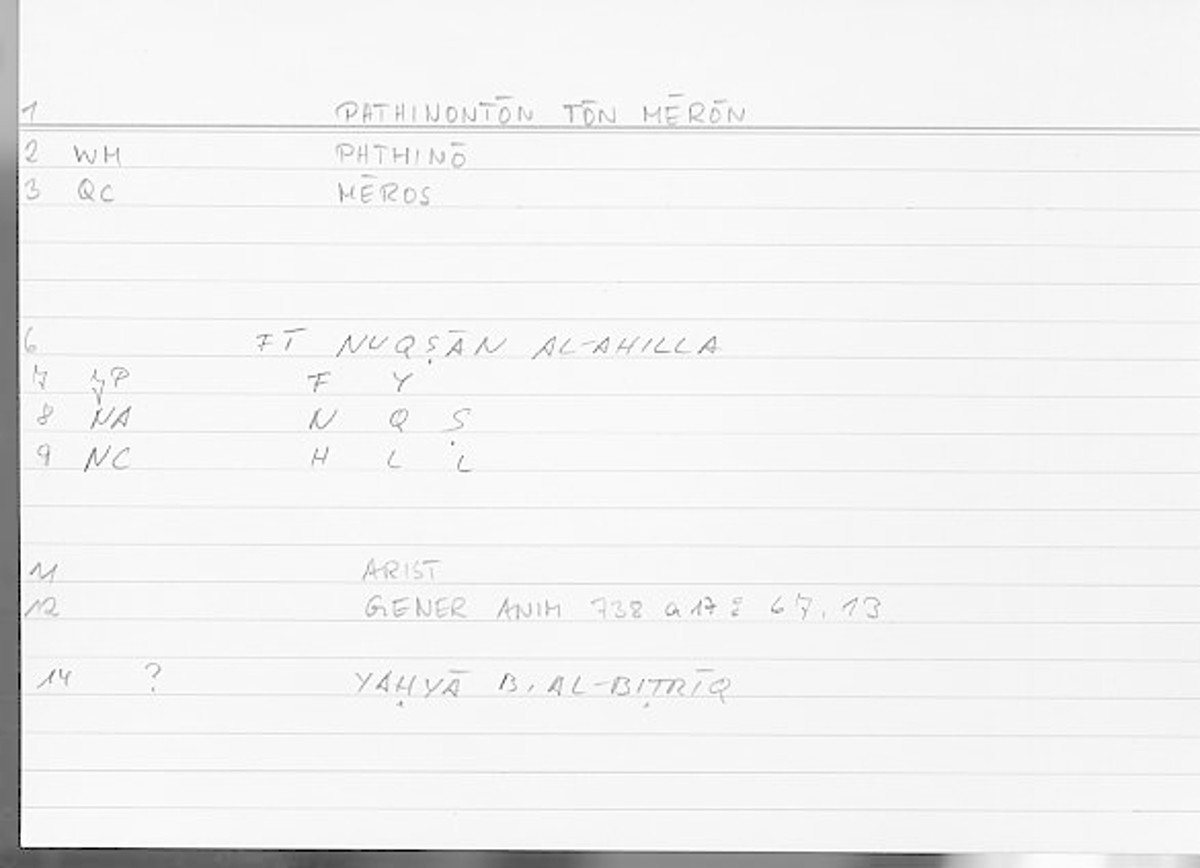 1 PATHINONTŌN TŌN MĒRŌN
2 WM PHTHINŌ
3 QC MĒROS
6 FĪ NUQṢĀN AL-AHILLA
7 P F Y
8 NA N Q Ṣ
9 NC H L L
11 ARIST
12 GENER ANIM 738 a 17 : 67.13
14 ? YAḤYĀ B. AL-BIṬRĪQ